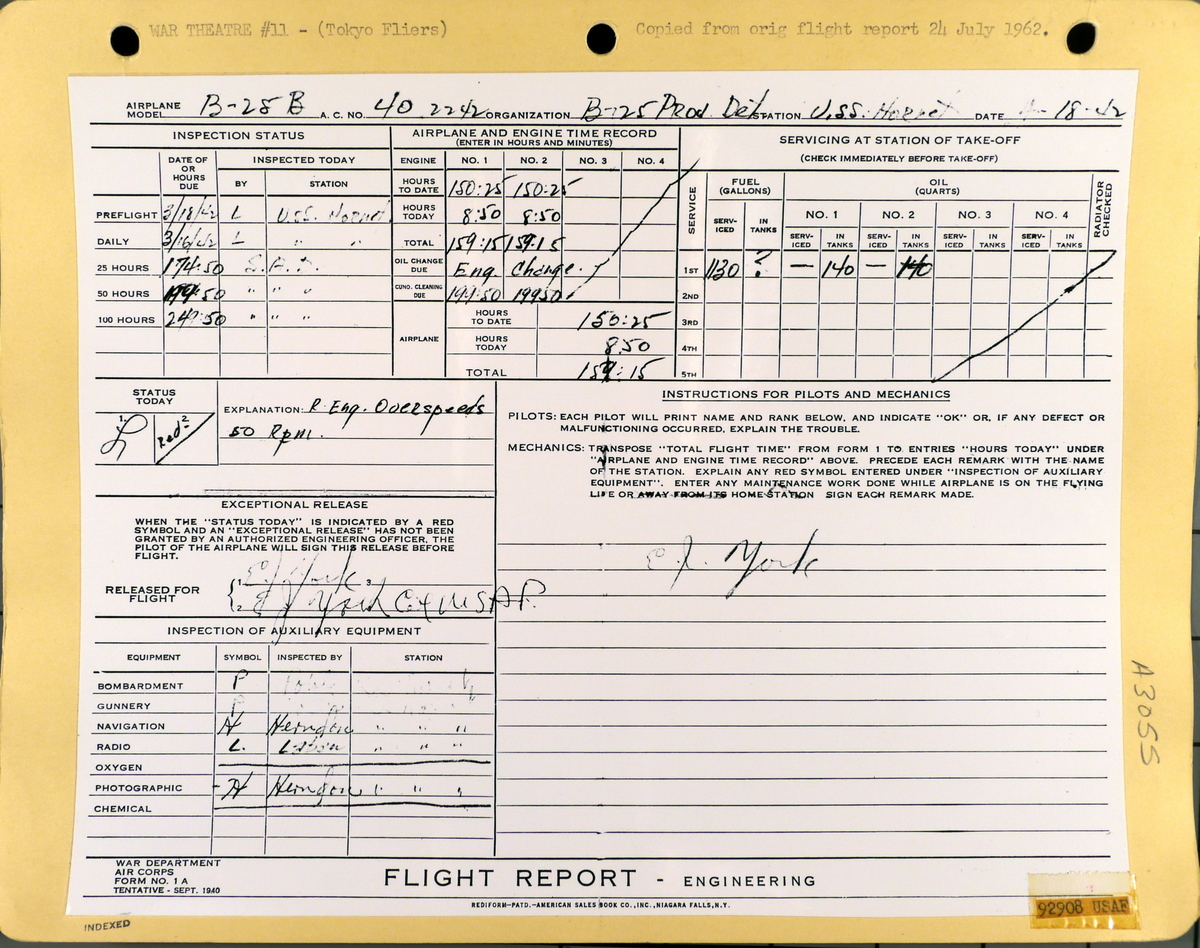 WAR THEATRE #11 - (Tokyo Fliers)
Copied from orig flight report 24 July 1962.
AIRPLANE MODEL B-25 B A. C. NO. 40 2242 ORGANIZATION B-25 Prod Det. STATION U.S.S. Hornet DATE 4-18-42
INSPECTION STATUS
DATE OF OR HOURS DUE
INSPECTED TODAY
BY STATION
PREFLIGHT 3/18/42 L U.S.S. Hornet
DAILY 3/16/42 L " "
25 HOURS 174:50
50 HOURS 199:50 " " "
100 HOURS 249:50 " " "
AIRPLANE AND ENGINE TIME RECORD
(ENTER IN HOURS AND MINUTES)
ENGINE NO. 1 NO. 2 NO. 3 NO. 4
HOURS TO DATE 150:25 150:25
HOURS TODAY 8:50 8:50
TOTAL 159:15 159:15
OIL CHANGE DUE Eng. Change.
CUNO. CLEANING DUE 199:50 19950
AIRPLANE
HOURS TO DATE 150:25
HOURS TODAY 8:50
TOTAL 159:15
SERVICING AT STATION OF TAKE-OFF
(CHECK IMMEDIATELY BEFORE TAKE-OFF)
SERVICE
FUEL (GALLONS)
OIL (QUARTS)
RADIATOR CHECKED
NO. 1 NO. 2 NO. 3 NO. 4
SERV-ICED IN TANKS SERV-ICED IN TANKS SERV-ICED IN TANKS SERV-ICED IN TANKS SERV-ICED IN TANKS
1ST 1130 ? — 140 — 140
2ND
3RD
4TH
5TH
STATUS TODAY
1. 2.
Red
EXPLANATION: R. Eng. Overspeeds
50 Rpm.
EXCEPTIONAL RELEASE
WHEN THE "STATUS TODAY" IS INDICATED BY A RED
SYMBOL AND AN "EXCEPTIONAL RELEASE" HAS NOT BEEN
GRANTED BY AN AUTHORIZED ENGINEERING OFFICER, THE
PILOT OF THE AIRPLANE WILL SIGN THIS RELEASE BEFORE
FLIGHT.
RELEASED FOR FLIGHT
1. E J York 3
2. E J York
INSPECTION OF AUXILIARY EQUIPMENT
EQUIPMENT SYMBOL INSPECTED BY STATION
BOMBARDMENT P
GUNNERY P
NAVIGATION H Herndon " " "
RADIO L. Laban " " "
OXYGEN
PHOTOGRAPHIC H Herndon " " "
CHEMICAL
INSTRUCTIONS FOR PILOTS AND MECHANICS
PILOTS: EACH PILOT WILL PRINT NAME AND RANK BELOW, AND INDICATE "OK" OR, IF ANY DEFECT OR
MALFUNCTIONING OCCURRED, EXPLAIN THE TROUBLE.
MECHANICS: TRANSPOSE "TOTAL FLIGHT TIME" FROM FORM 1 TO ENTRIES "HOURS TODAY" UNDER
"AIRPLANE AND ENGINE TIME RECORD" ABOVE. PRECEDE EACH REMARK WITH THE NAME
OF THE STATION. EXPLAIN ANY RED SYMBOL ENTERED UNDER "INSPECTION OF AUXILIARY
EQUIPMENT". ENTER ANY MAINTENANCE WORK DONE WHILE AIRPLANE IS ON THE FLYING
LINE OR AWAY FROM ITS HOME STATION SIGN EACH REMARK MADE.
E J. York
WAR DEPARTMENT
AIR CORPS
FORM NO. 1 A
TENTATIVE - SEPT. 1940
FLIGHT REPORT - ENGINEERING
REDIFORM-PATD.-AMERICAN SALES BOOK CO., INC., NIAGARA FALLS, N.Y.
INDEXED
92908 USAF
A3055